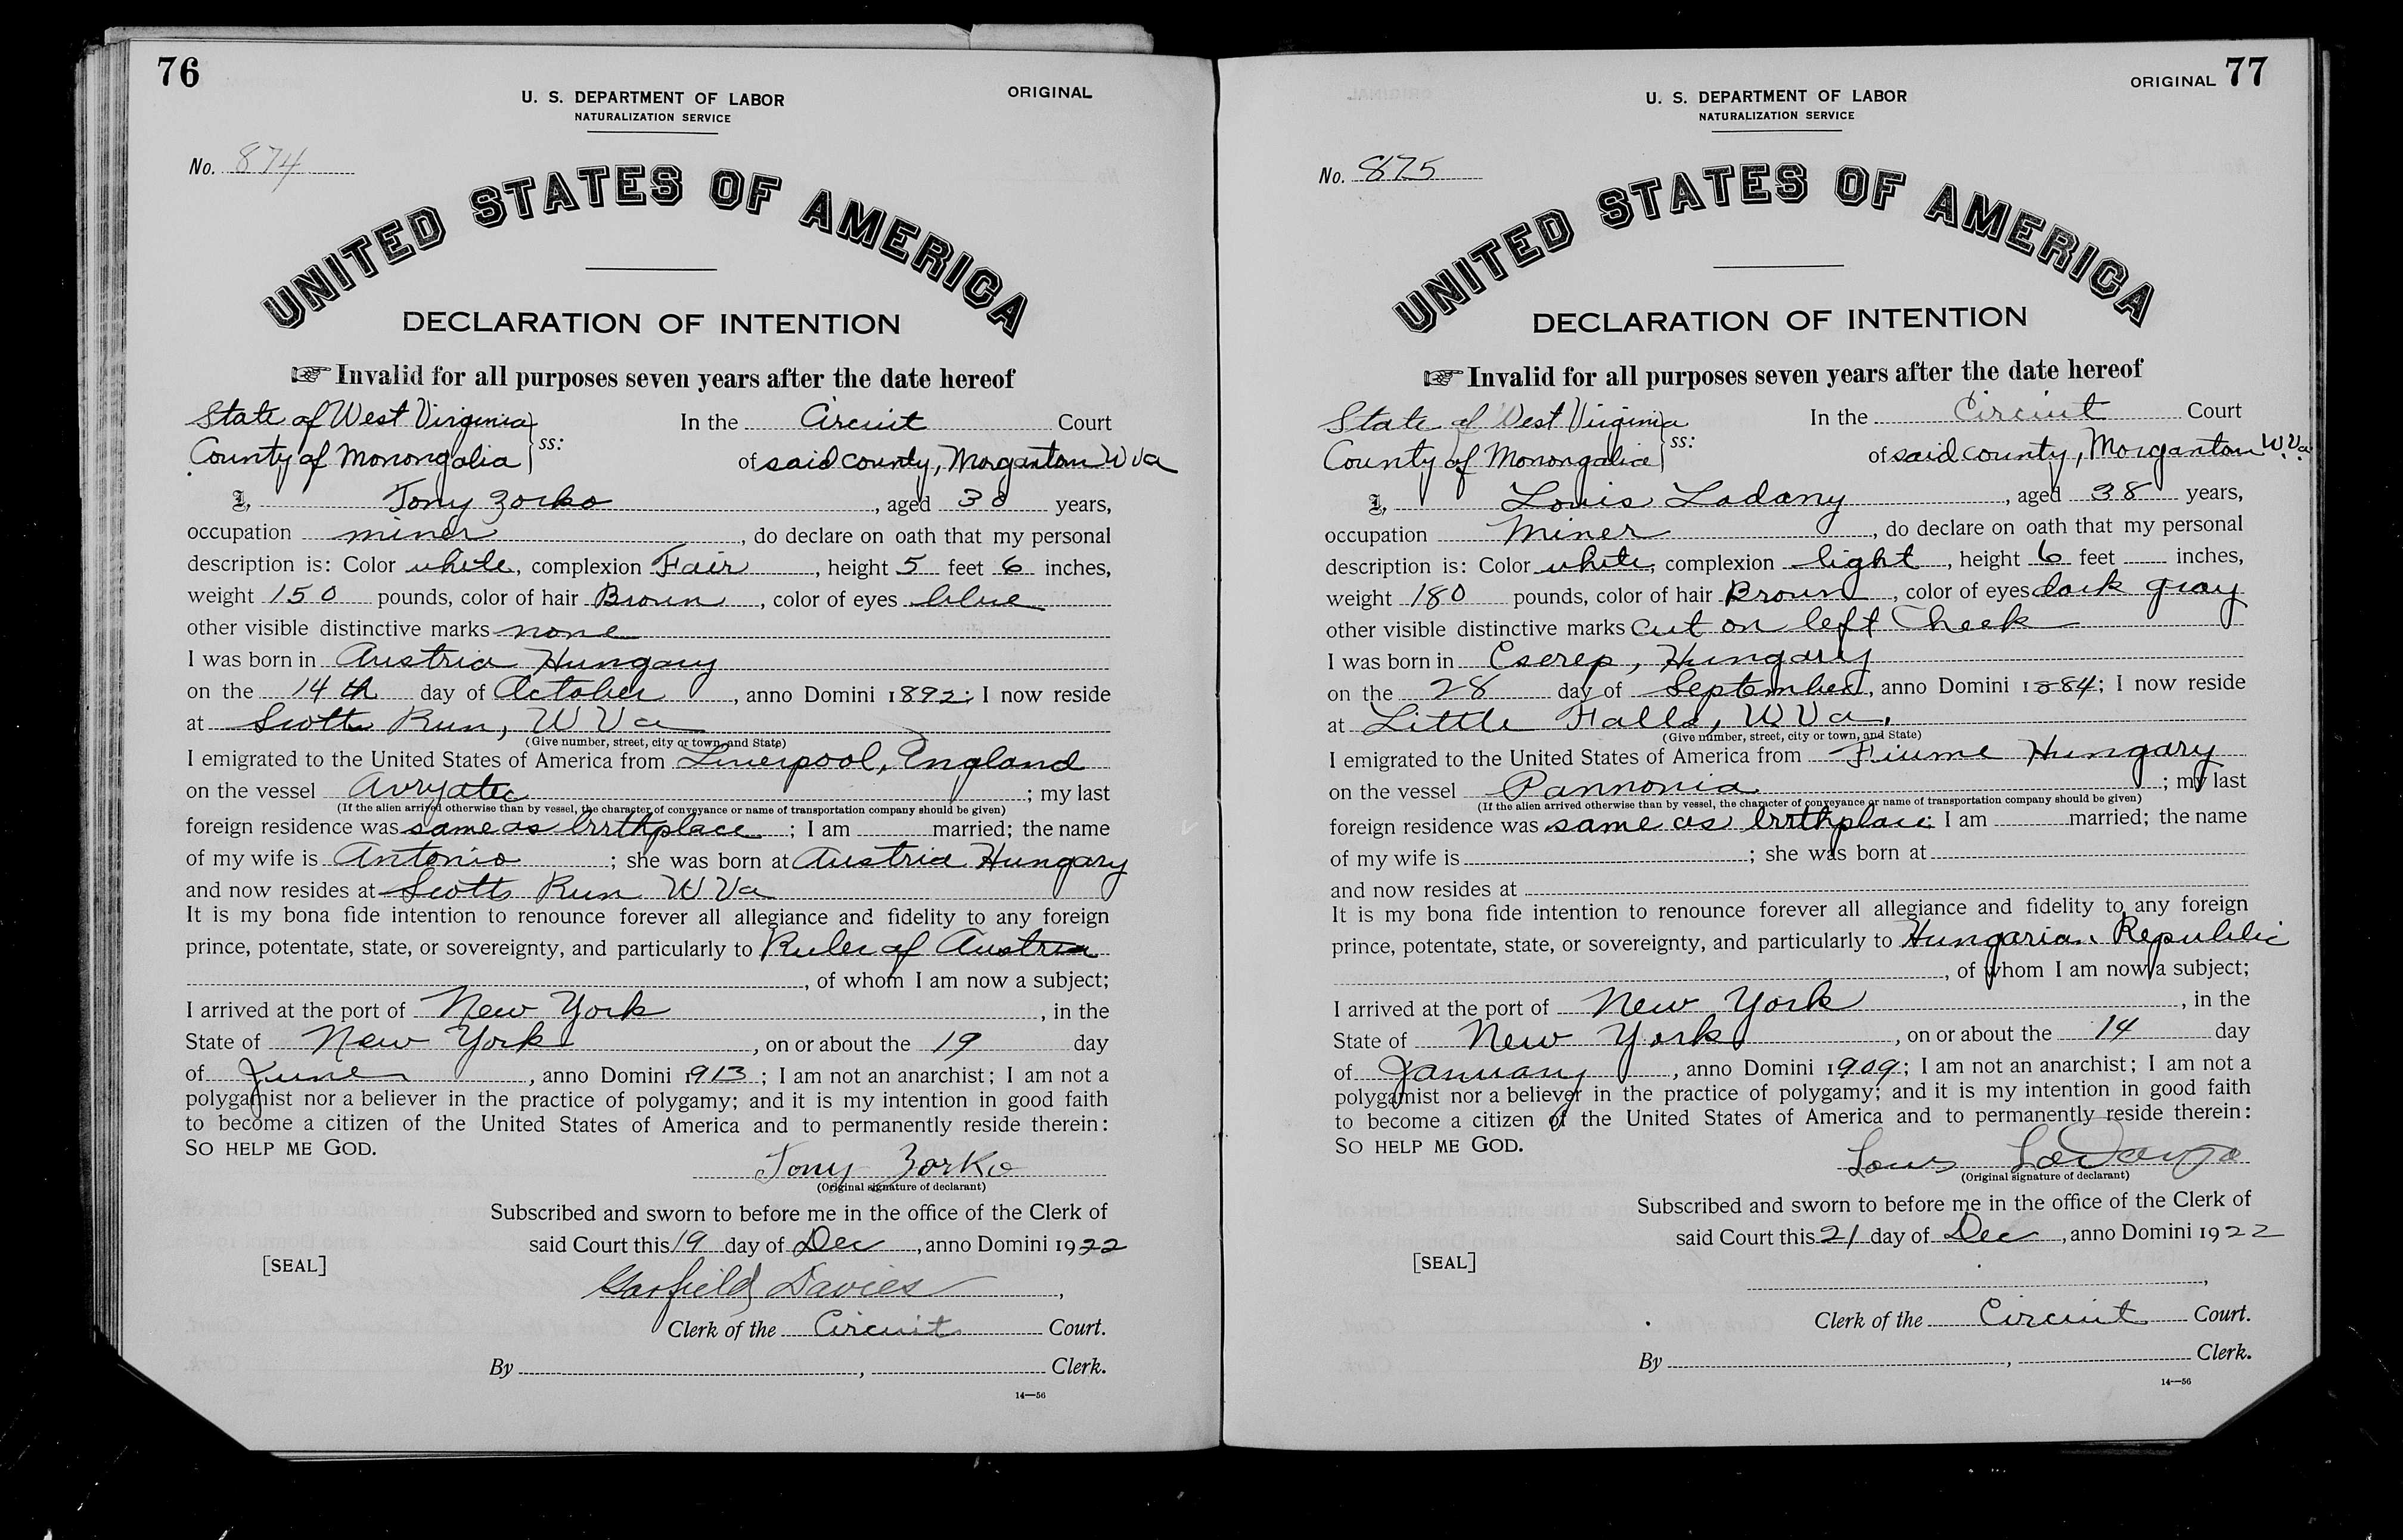 76
U. S. DEPARTMENT OF LABOR
ORIGINAL
NATURALIZATION SERVICE
No. 874
UNITED STATES OF AMERICA
DECLARATION OF INTENTION
Invalid for all purposes seven years after the date hereof
State of West Virginia
County of Monongalia
ss:
In the Circuit Court
of said county, Morgantown W Va
I, Tony Zorko, aged 30 years,
occupation miner, do declare on oath that my personal
description is: Color white, complexion Fair, height 5 feet 6 inches,
weight 150 pounds, color of hair Brown, color of eyes blue
other visible distinctive marks none
I was born in Austria Hungary
on the 14th day of October, anno Domini 1892; I now reside
at Scotts Run, W Va
(Give number, street, city or town, and State)
I emigrated to the United States of America from Liverpool, England
on the vessel ; my last
(If the alien arrived otherwise than by vessel, the character of conveyance or name of transportation company should be given)
foreign residence was same as birthplace; I am married; the name
of my wife is Antonio; she was born at Austria Hungary
and now resides at Scotts Run W Va
It is my bona fide intention to renounce forever all allegiance and fidelity to any foreign
prince, potentate, state, or sovereignty, and particularly to Ruler of Austria
, of whom I am now a subject;
I arrived at the port of New York, in the
State of New York, on or about the 19 day
of June, anno Domini 1913; I am not an anarchist; I am not a
polygamist nor a believer in the practice of polygamy; and it is my intention in good faith
to become a citizen of the United States of America and to permanently reside therein:
SO HELP ME GOD.
Tony Zorko
(Original signature of declarant)
Subscribed and sworn to before me in the office of the Clerk of
said Court this 19 day of Dec, anno Domini 1922
[SEAL]
Garfield Davies,
Clerk of the Circuit Court.
By , Clerk.
14—56
ORIGINAL 77
U. S. DEPARTMENT OF LABOR
NATURALIZATION SERVICE
No. 875
UNITED STATES OF AMERICA
DECLARATION OF INTENTION
Invalid for all purposes seven years after the date hereof
State of West Virginia
County of Monongalia
ss:
In the Circuit Court
of said county, Morgantown W. Va.
I, Louis Ladany, aged 38 years,
occupation Miner, do declare on oath that my personal
description is: Color white, complexion light, height 6 feet inches,
weight 180 pounds, color of hair Brown, color of eyes dark gray
other visible distinctive marks cut on left Cheek
I was born in Cserep, Hungary
on the 28 day of September, anno Domini 1884; I now reside
at Little Falls, W Va.
(Give number, street, city or town, and State)
I emigrated to the United States of America from Fiume Hungary
on the vessel Pannonia; my last
(If the alien arrived otherwise than by vessel, the character of conveyance or name of transportation company should be given)
foreign residence was same as birthplace; I am married; the name
of my wife is ; she was born at
and now resides at
It is my bona fide intention to renounce forever all allegiance and fidelity to any foreign
prince, potentate, state, or sovereignty, and particularly to Hungarian Republic
, of whom I am now a subject;
I arrived at the port of New York, in the
State of New York, on or about the 14 day
of January, anno Domini 1909; I am not an anarchist; I am not a
polygamist nor a believer in the practice of polygamy; and it is my intention in good faith
to become a citizen of the United States of America and to permanently reside therein:
SO HELP ME GOD.
Louis
(Original signature of declarant)
Subscribed and sworn to before me in the office of the Clerk of
said Court this 21 day of Dec, anno Domini 1922
[SEAL]
,
Clerk of the Circuit Court.
By , Clerk.
14—56